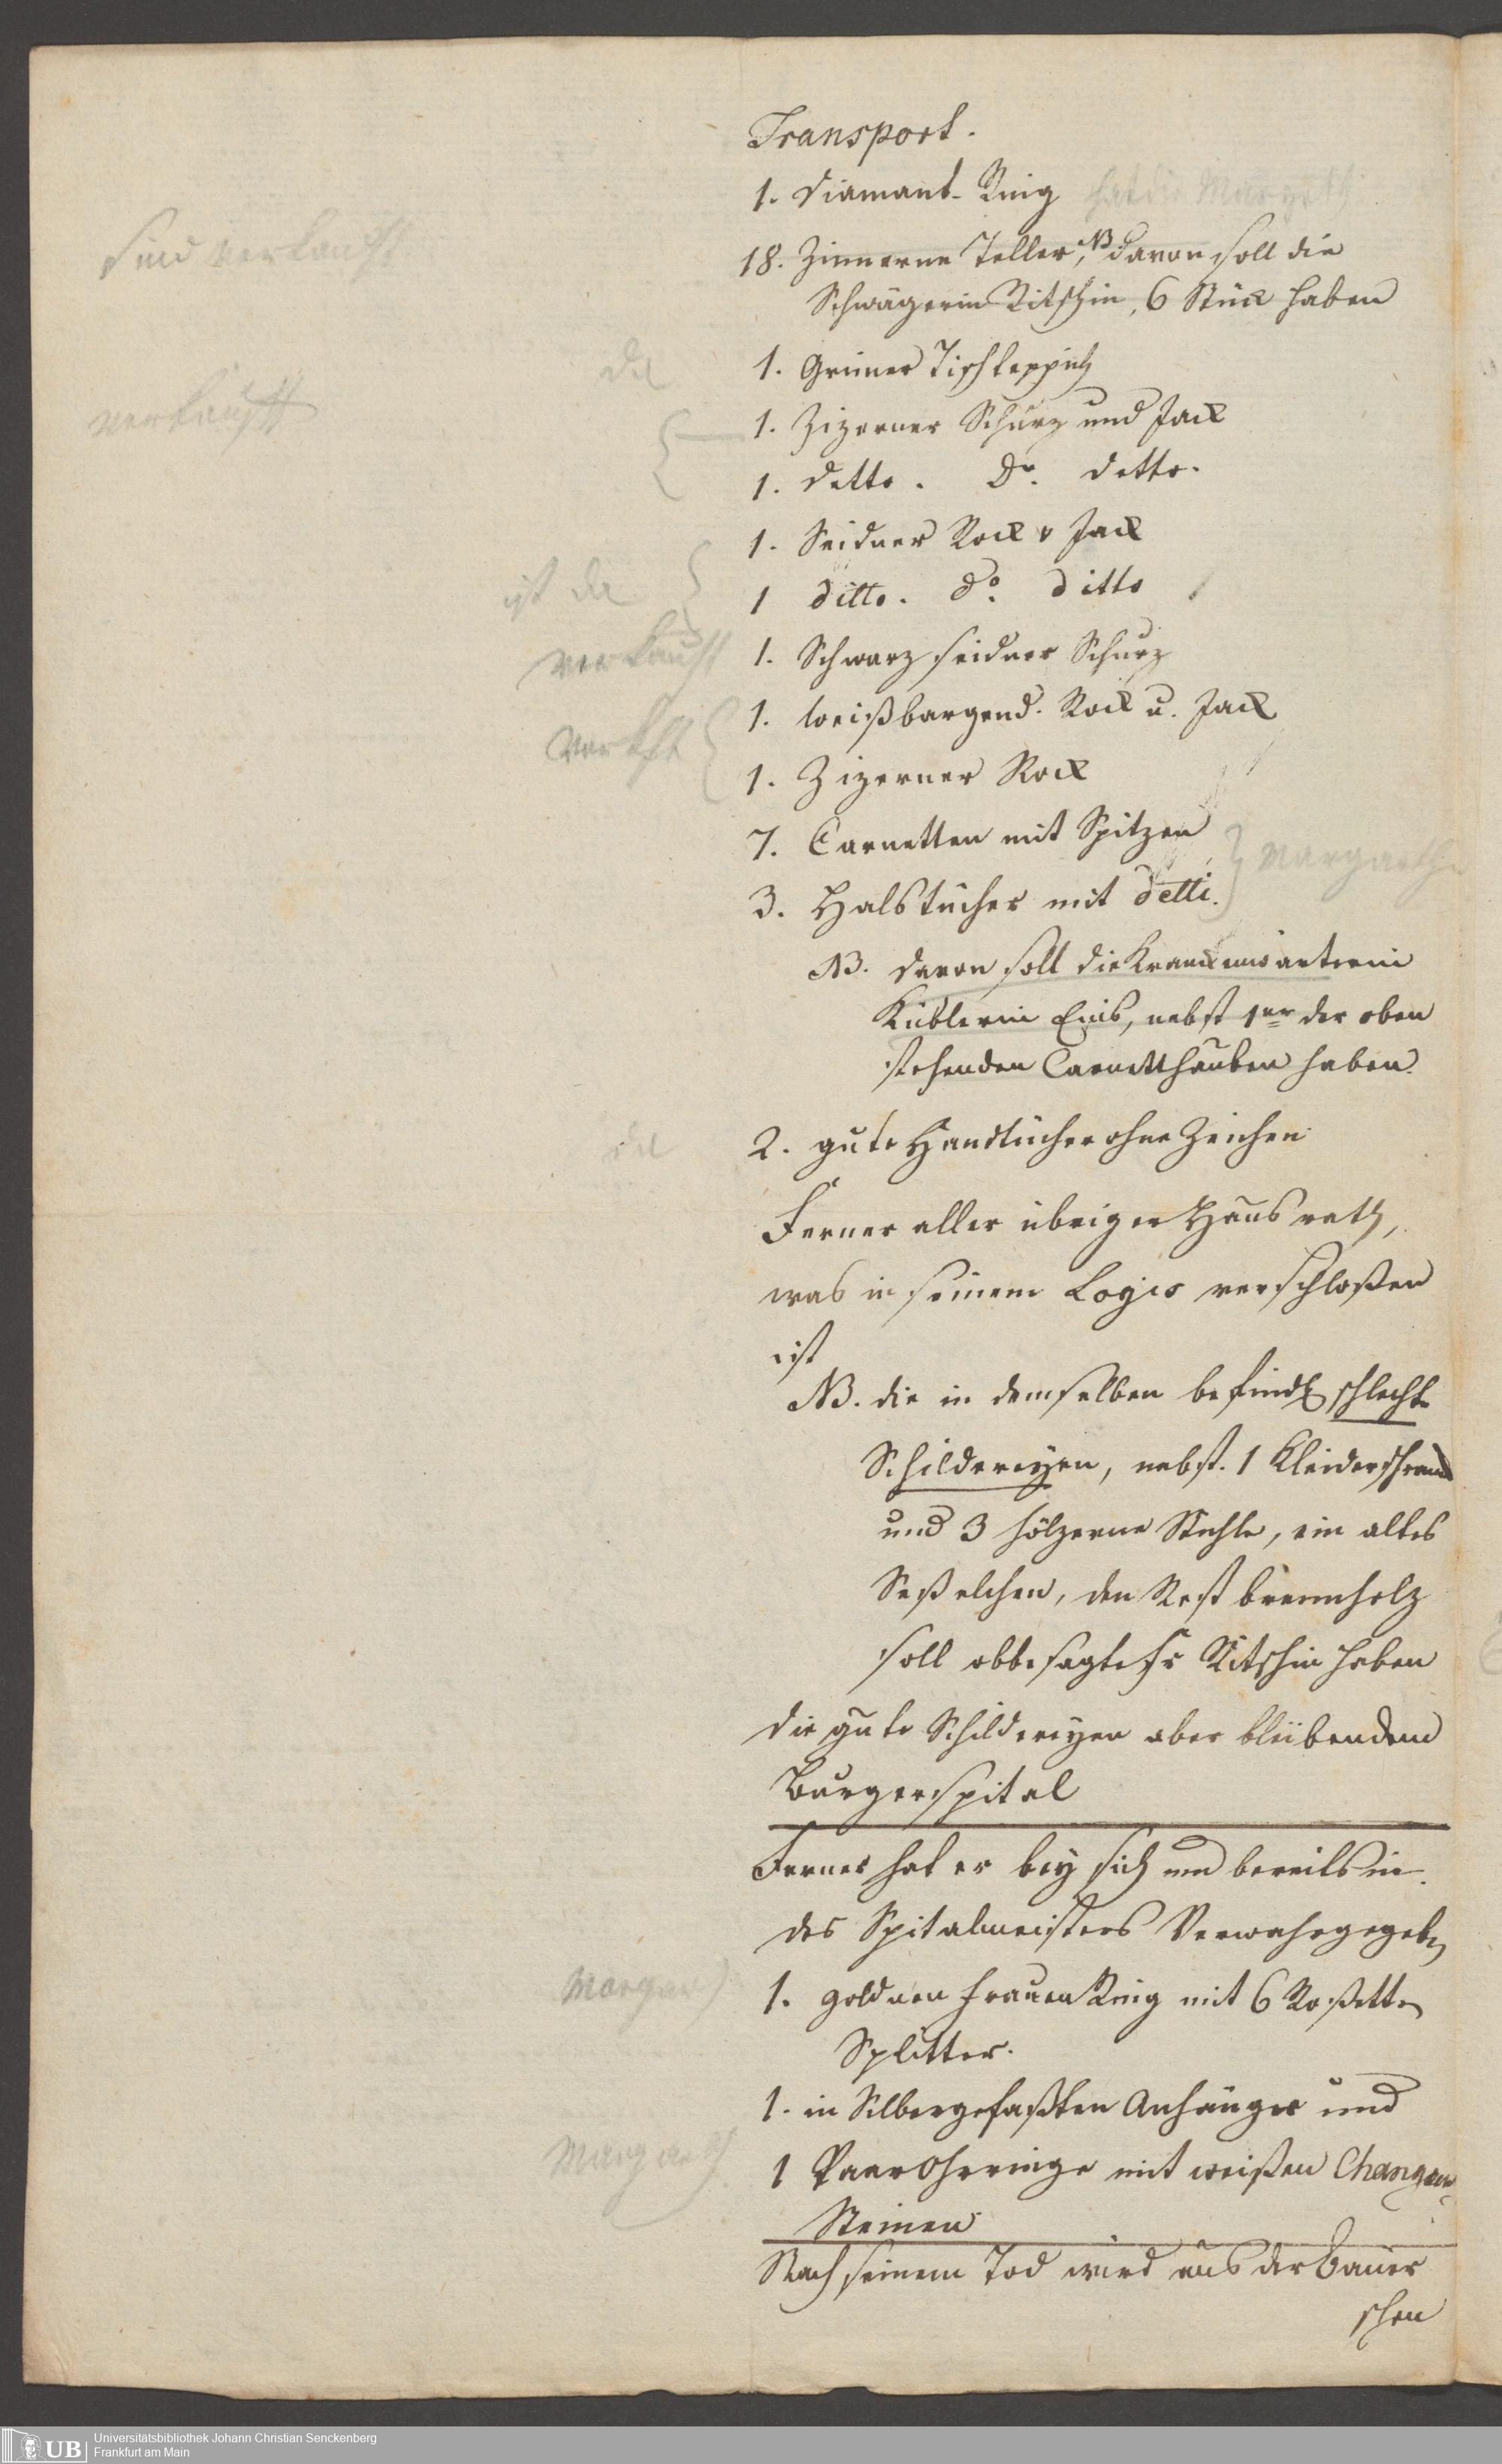 Transport.
1. Diamant-Ring hat die Margreth
sind verkauft
18. Zinnerne Teller, NB. davon soll die
Schwägerin Ritschin, 6 Stück haben
da
1. Grüner Tischteppich
verkauft
1. Zizerner Schurz und Jack
1. detto. Do. detto.
1. Seidner Rock & Jack
ist da
1 ditto. do. ditto
verkauft
1. Schwarz seidner Schurz
1. weißbargend. Rock u. Jack
verkft
1. Zizerner Rock
7. Carnetten mit Spitzen
Margareth
3. Halstücher mit detti.
NB. davon soll die Krankenwärterin
Küblerin Eins, nebst 1er der oben
stehenden Carnetthauben haben.
da
2. gute Handtücher ohne Zeichen
Ferner aller übriger Hausrath,
was in seinem Logis verschloßen
ist
NB. die in demselben befindl. schlechte
Schildereyen, nebst. 1 Kleiderschrank
und 3 hölzerne Stühle, ein altes
Seßelchen, den Rest brennholz
soll obbesagte Fr Ritschin haben
die gute Schildereyen aber bleiben dem
Burgerspital
Ferner hat er bey sich und bereits in
des Spitalmeisters Verwahr gegeben
Margar
1. goldnen Frauen Ring mit 6 Roßetten
Splitter.
1. in Silber gefaßten Anhänger und
Margareth
1 Paar Ohrringe mit weißen
Steinen
Nach seinem Tod wird aus der Bauer
schen
Universitätsbibliothek Johann Christian Senckenberg
Frankfurt am Main
UB